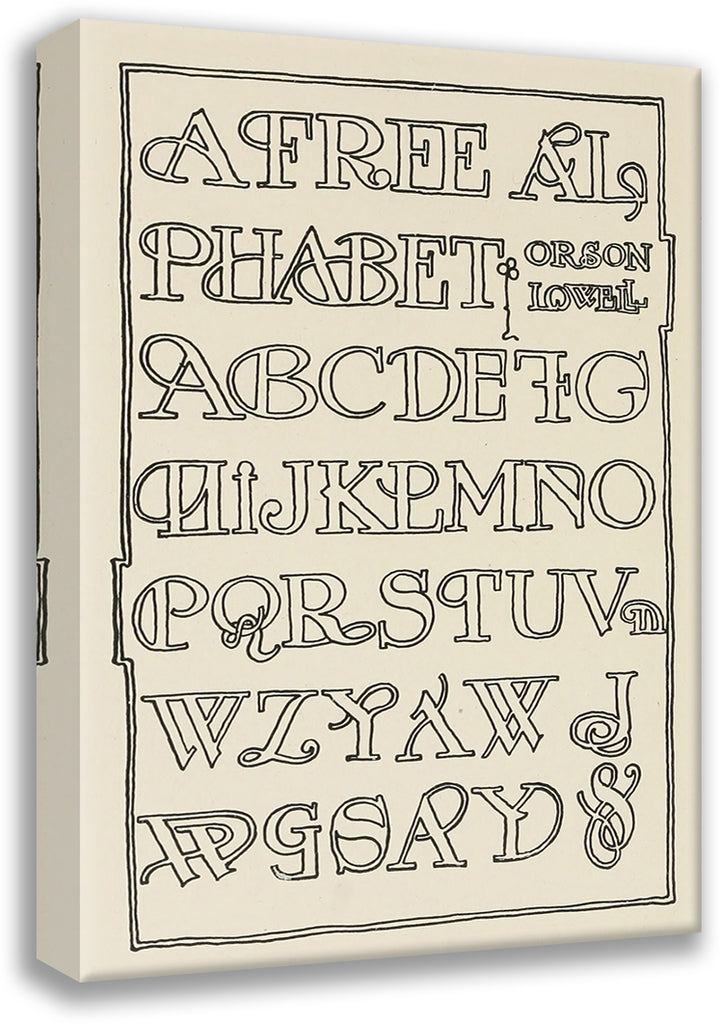 A FREE AL
PHABET
ORSON
LOWELL
ABCDEFG
HIJKLMNO
PQRSTUV
WZYXW J
GSA Y &